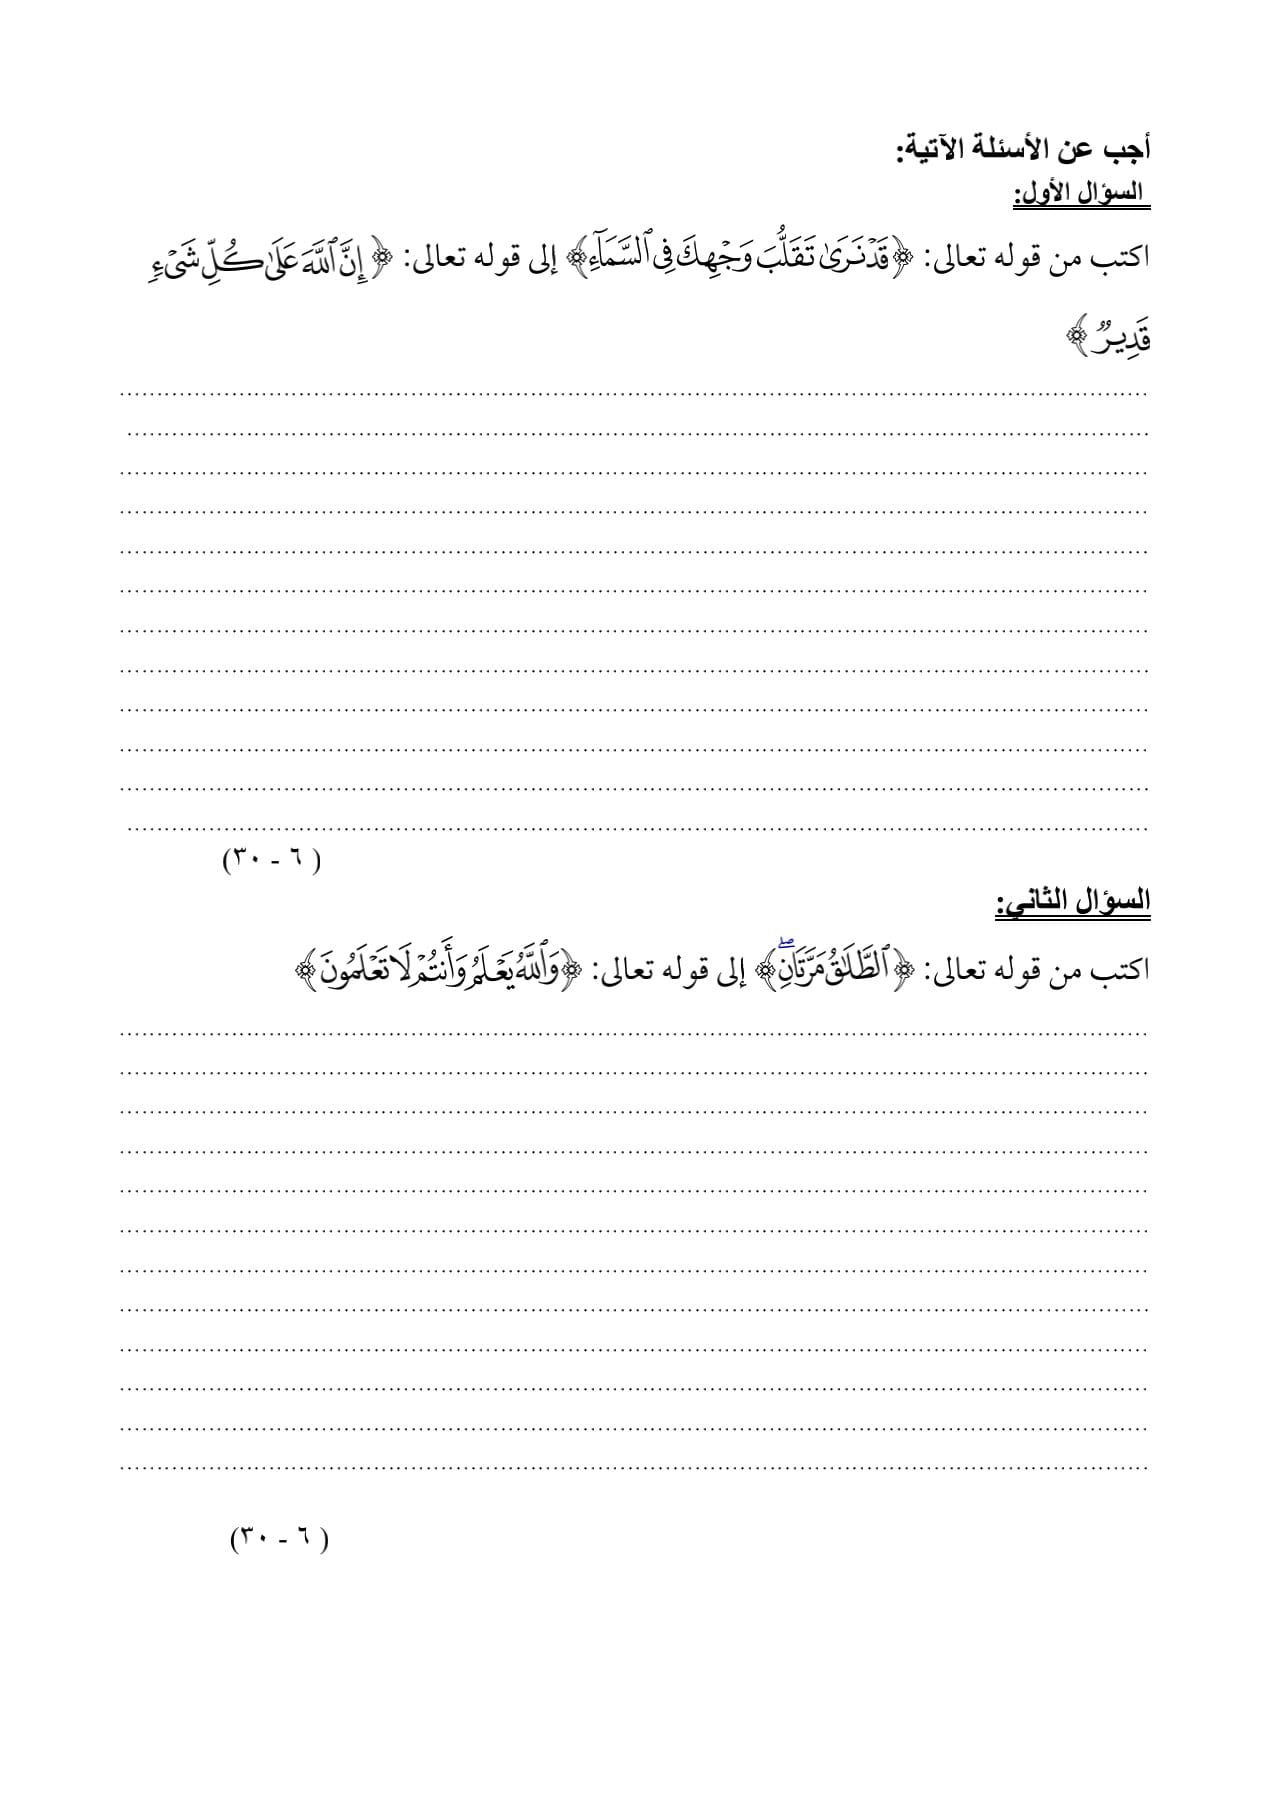 أجب عن الأسئلة الآتية:
السؤال الأول:
اكتب من قوله تعالى: ﴿قَدْ نَرَىٰ تَقَلُّبَ وَجْهِكَ فِي ٱلسَّمَآءِ﴾ إلى قوله تعالى: ﴿إِنَّ ٱللَّهَ عَلَىٰ كُلِّ شَىْءٍ
قَدِيرٌ﴾
(٦ - ٣٠)
السؤال الثاني:
اكتب من قوله تعالى: ﴿ٱلطَّلَٰقُ مَرَّتَانِۖ﴾ إلى قوله تعالى: ﴿وَٱللَّهُ يَعْلَمُ وَأَنتُمْ لَا تَعْلَمُونَ﴾
(٦ - ٣٠)